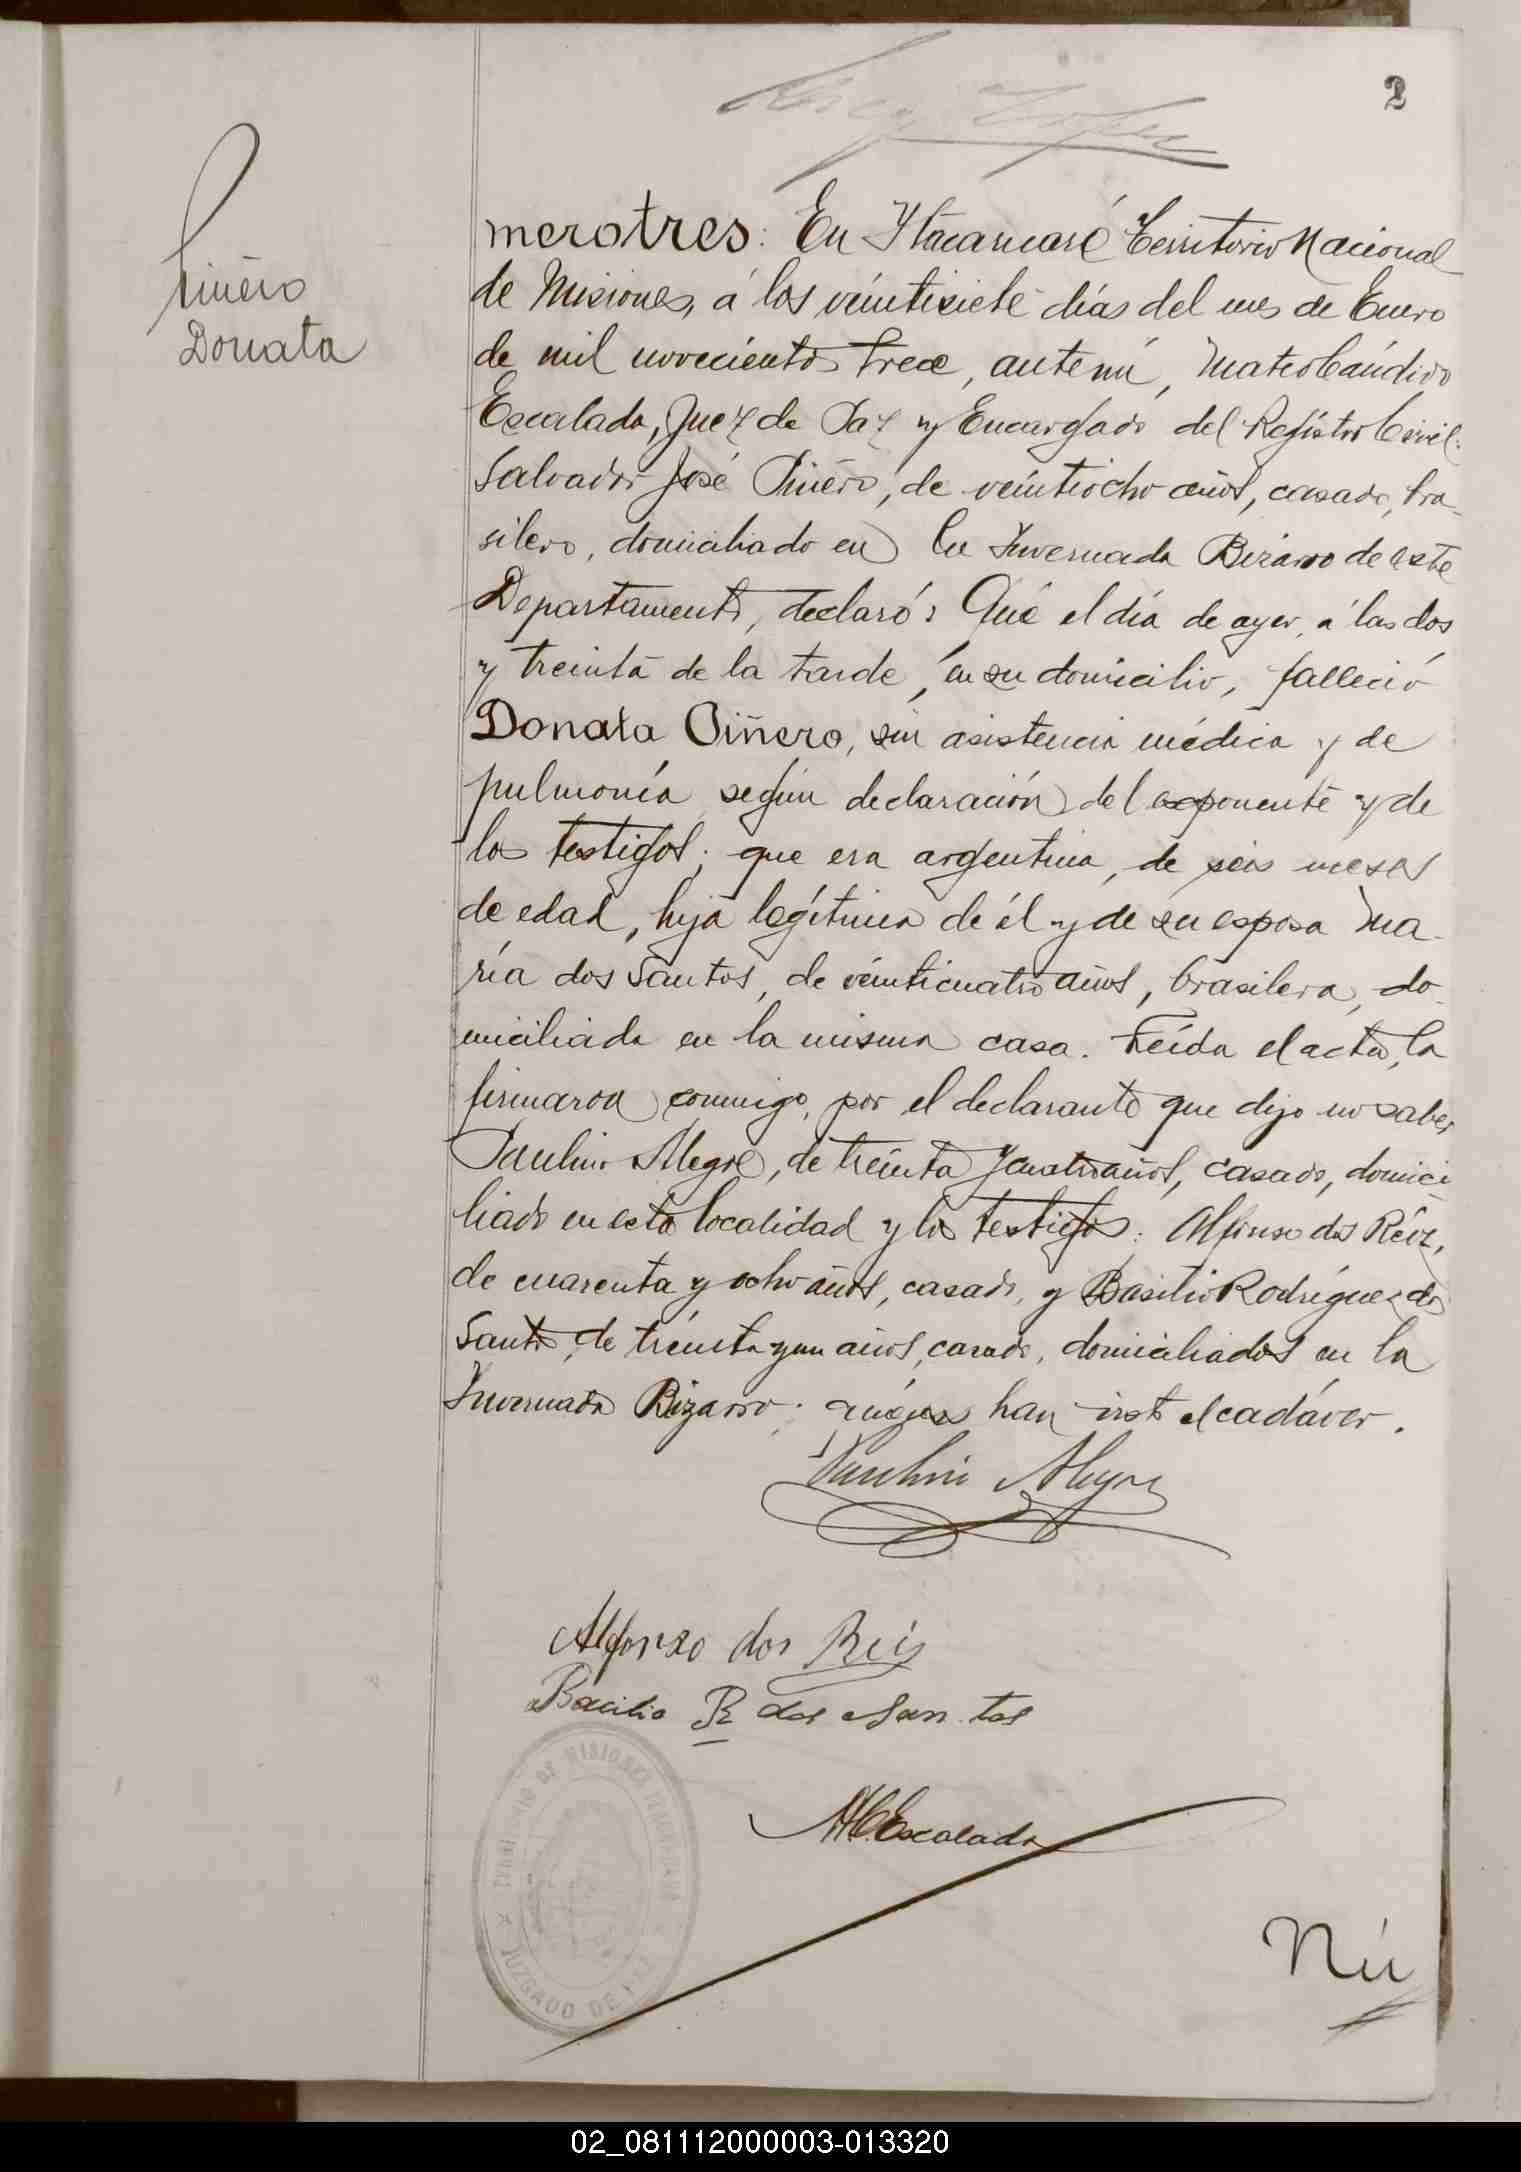 2
Piñero
Donata
merotres: En Itacaruaré Territorio Nacional
de Misiones, á los veintisiete días del mes de Enero
de mil novecientos trece, ante mí, Mateo Cándido
Escalada, Juez de Paz y Encargado del Registro Civil:
Salvador José Piñero, de veintiocho años, casado, bra-
silero, domiciliado en la Invernada Bizarro de este
Departamento, declaró: Qué el día de ayer, á las dos
y treinta de la tarde, en su domicilio, falleció
Donata Piñero, sin asistencia médica y de
pulmonía según declaración del exponente y de
los testigos; que era argentina, de seis meses
de edad, hija legítima de él y de su esposa Ma-
ría dos Santos, de veinticuatro años, brasilera, do-
miciliada en la misma casa. Leída el acta, la
firmaron conmigo, por el declarante que dijo no saber
Paulino Alegre, de treinta y cuatro años, casado, domici-
liado en esta localidad y los testigos: Alfonso dos Réiz,
de cuarenta y ocho años, casado, y Basilio Rodríguez dos
Santos, de treinta y un años, casado, domiciliados en la
Invernada Bizarro; quiénes han visto el cadáver.
Paulino Alegre
Alfonso dos Reis
Bacilio R dos San tos
TERRITORIO DE MISIONES
JUZGADO DE PAZ
MCEscalada
Nú
02_081112000003-013320